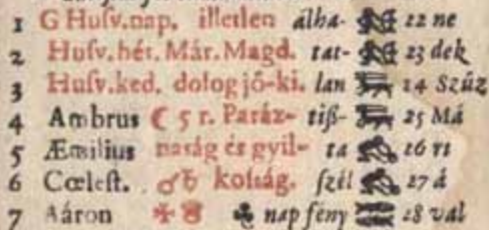 1 G Huſv.nap. illetlen álha- 22 ne
2 Huſv.hét. Már.Magd. tat- 23 dek
3 Huſv.ked. dolog jó-ki. lan 14 Szűz
4 Ambrus ☾ 5 r. Paráz- tiß- 25 Má
5 Æmilius naság és gyil- ta 26 ri
6 Cœleſt. ♂ ♄ koſság. ſzél 27 á
7 Aáron nap fény 28 val